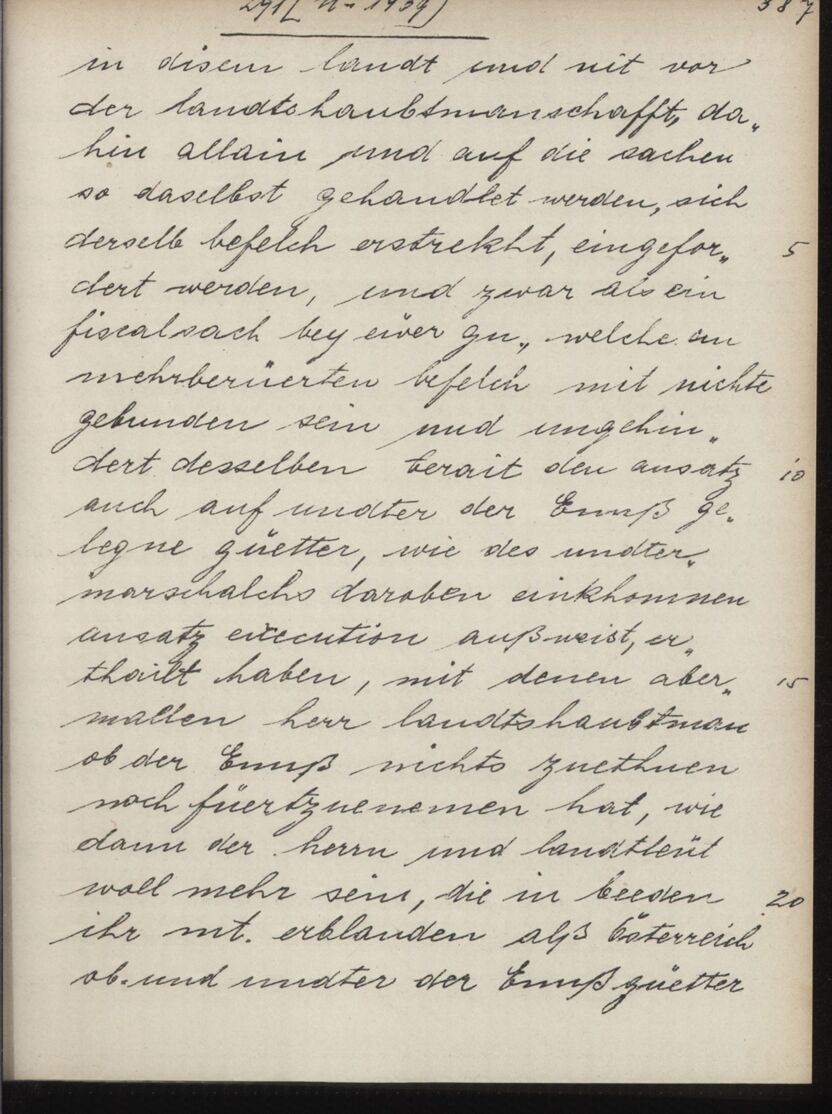 291 [ N - 1939) 387
in disem landt und nit vor
der landtshaubtmanschafft, da„
hin allain und auf die sachen
so daselbst gehandlet werden, sich
derselb befelch erstrekht, eingefor„ 5
dert werden, und zwar als ein
fiscalsach bey eüer gn„ welche an
mehrberüerten befelch mit nichte
gebunden sein und ungehin„
dert desselben berait den ansatz 10
auch auf undter der Ennß ge„
legne güetter, wie des undter„
marschalchs daroben einkhommen
ansatz execution außweist, er„
thailt haben, mit denen aber„ 15
mallen herr landtshaubtman
ob der Ennß nichts zuethuen
noch füertzuenemen hat, wie
dann der herrn und landtleüt
woll mehr sein, die in beeden 20
ihr mt. erblanden alß Österreich
ob- und undter der Ennß güetter